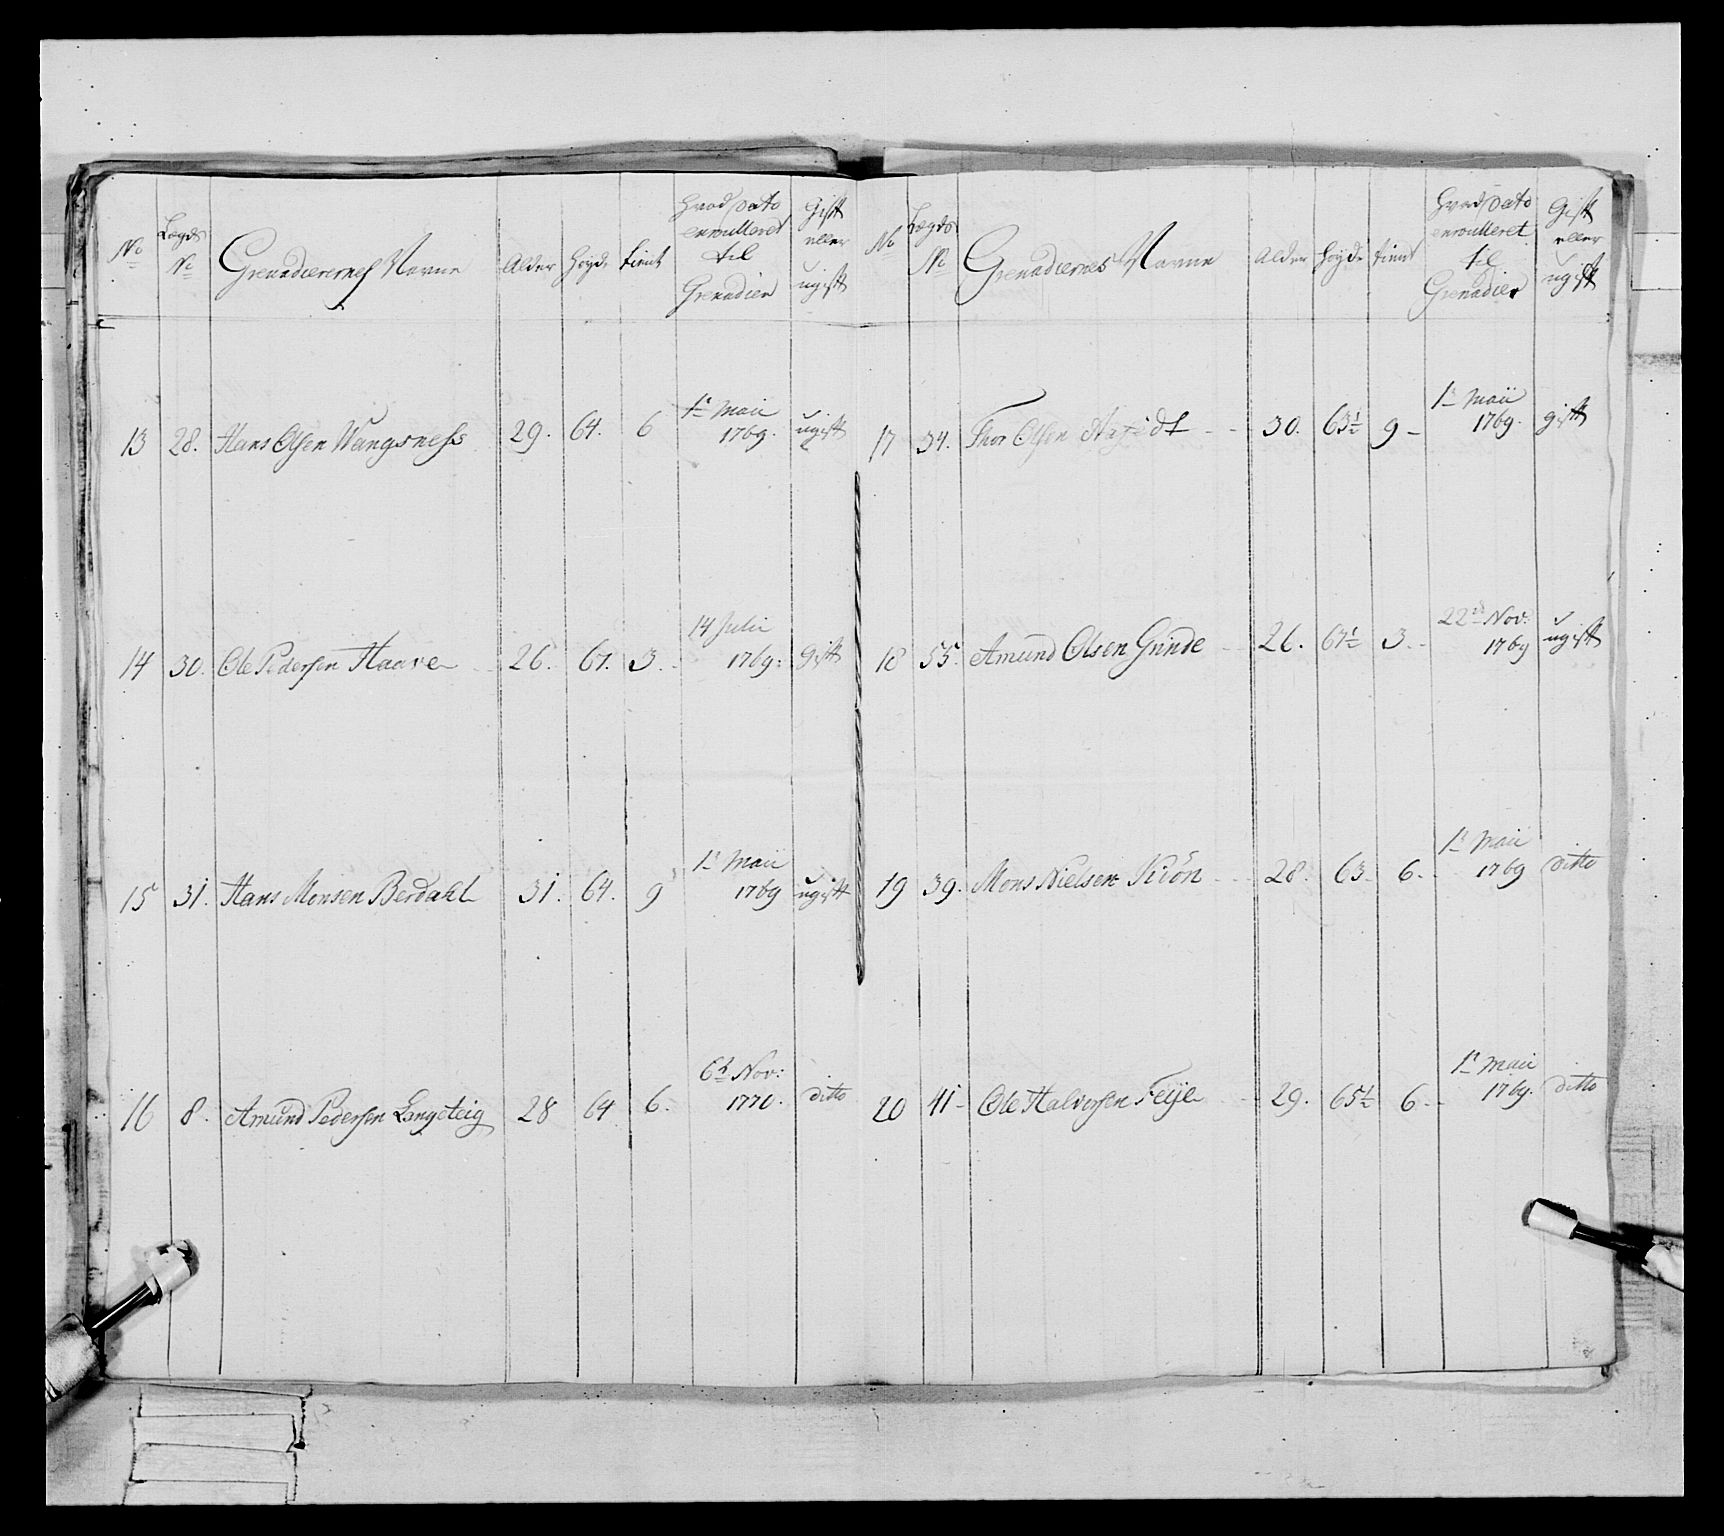 No Lægds No Grenaderernes Navne Alder Høyde tient Hvad Dato enroulleret til Grenadier Gift eller ugift
13 28. Hans Olsen Wangsness 29. 64. 6 1te Maii 1769. ugift
14 30. Ole Pedersen Haave 26. 67. 3. 14 Julii 1769. Gift
15 31. Hans Monsen Berdahl 31. 64. 9 1te Maii 1769 ugift
16 8. Amund Pedersen Langeteig 28 64 6. 6te Nov: 1770. ditto
No Lægds No Grenadiernes Navne Alder Høyde tient Hvad Dato enroulleret til Grenadier Gift eller ugift
17 34. Thor Olsen 30. 63½ 9 1te Maii 1769. gift
18 35. Amund Olsen Grinde 26. 67½ 3. 22de Nov: 1769 ugift
19 39. Mons Nielsen 28. 63. 6. 1te Maii 1769 ditto
20 41 Ole Halvorsen Feije 29. 65½ 6. 1te Maii 1769. ditto